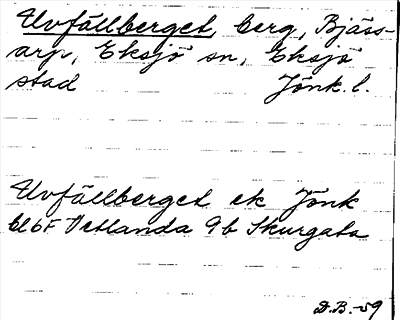 Uvfällberget, berg, Bjäss-
arp, Eksjö sn, Eksjö
stad Jönk. l.
Uvfällberget ek Jönk
bl 6F Vetlanda 9b Skurgata
D.B.-59